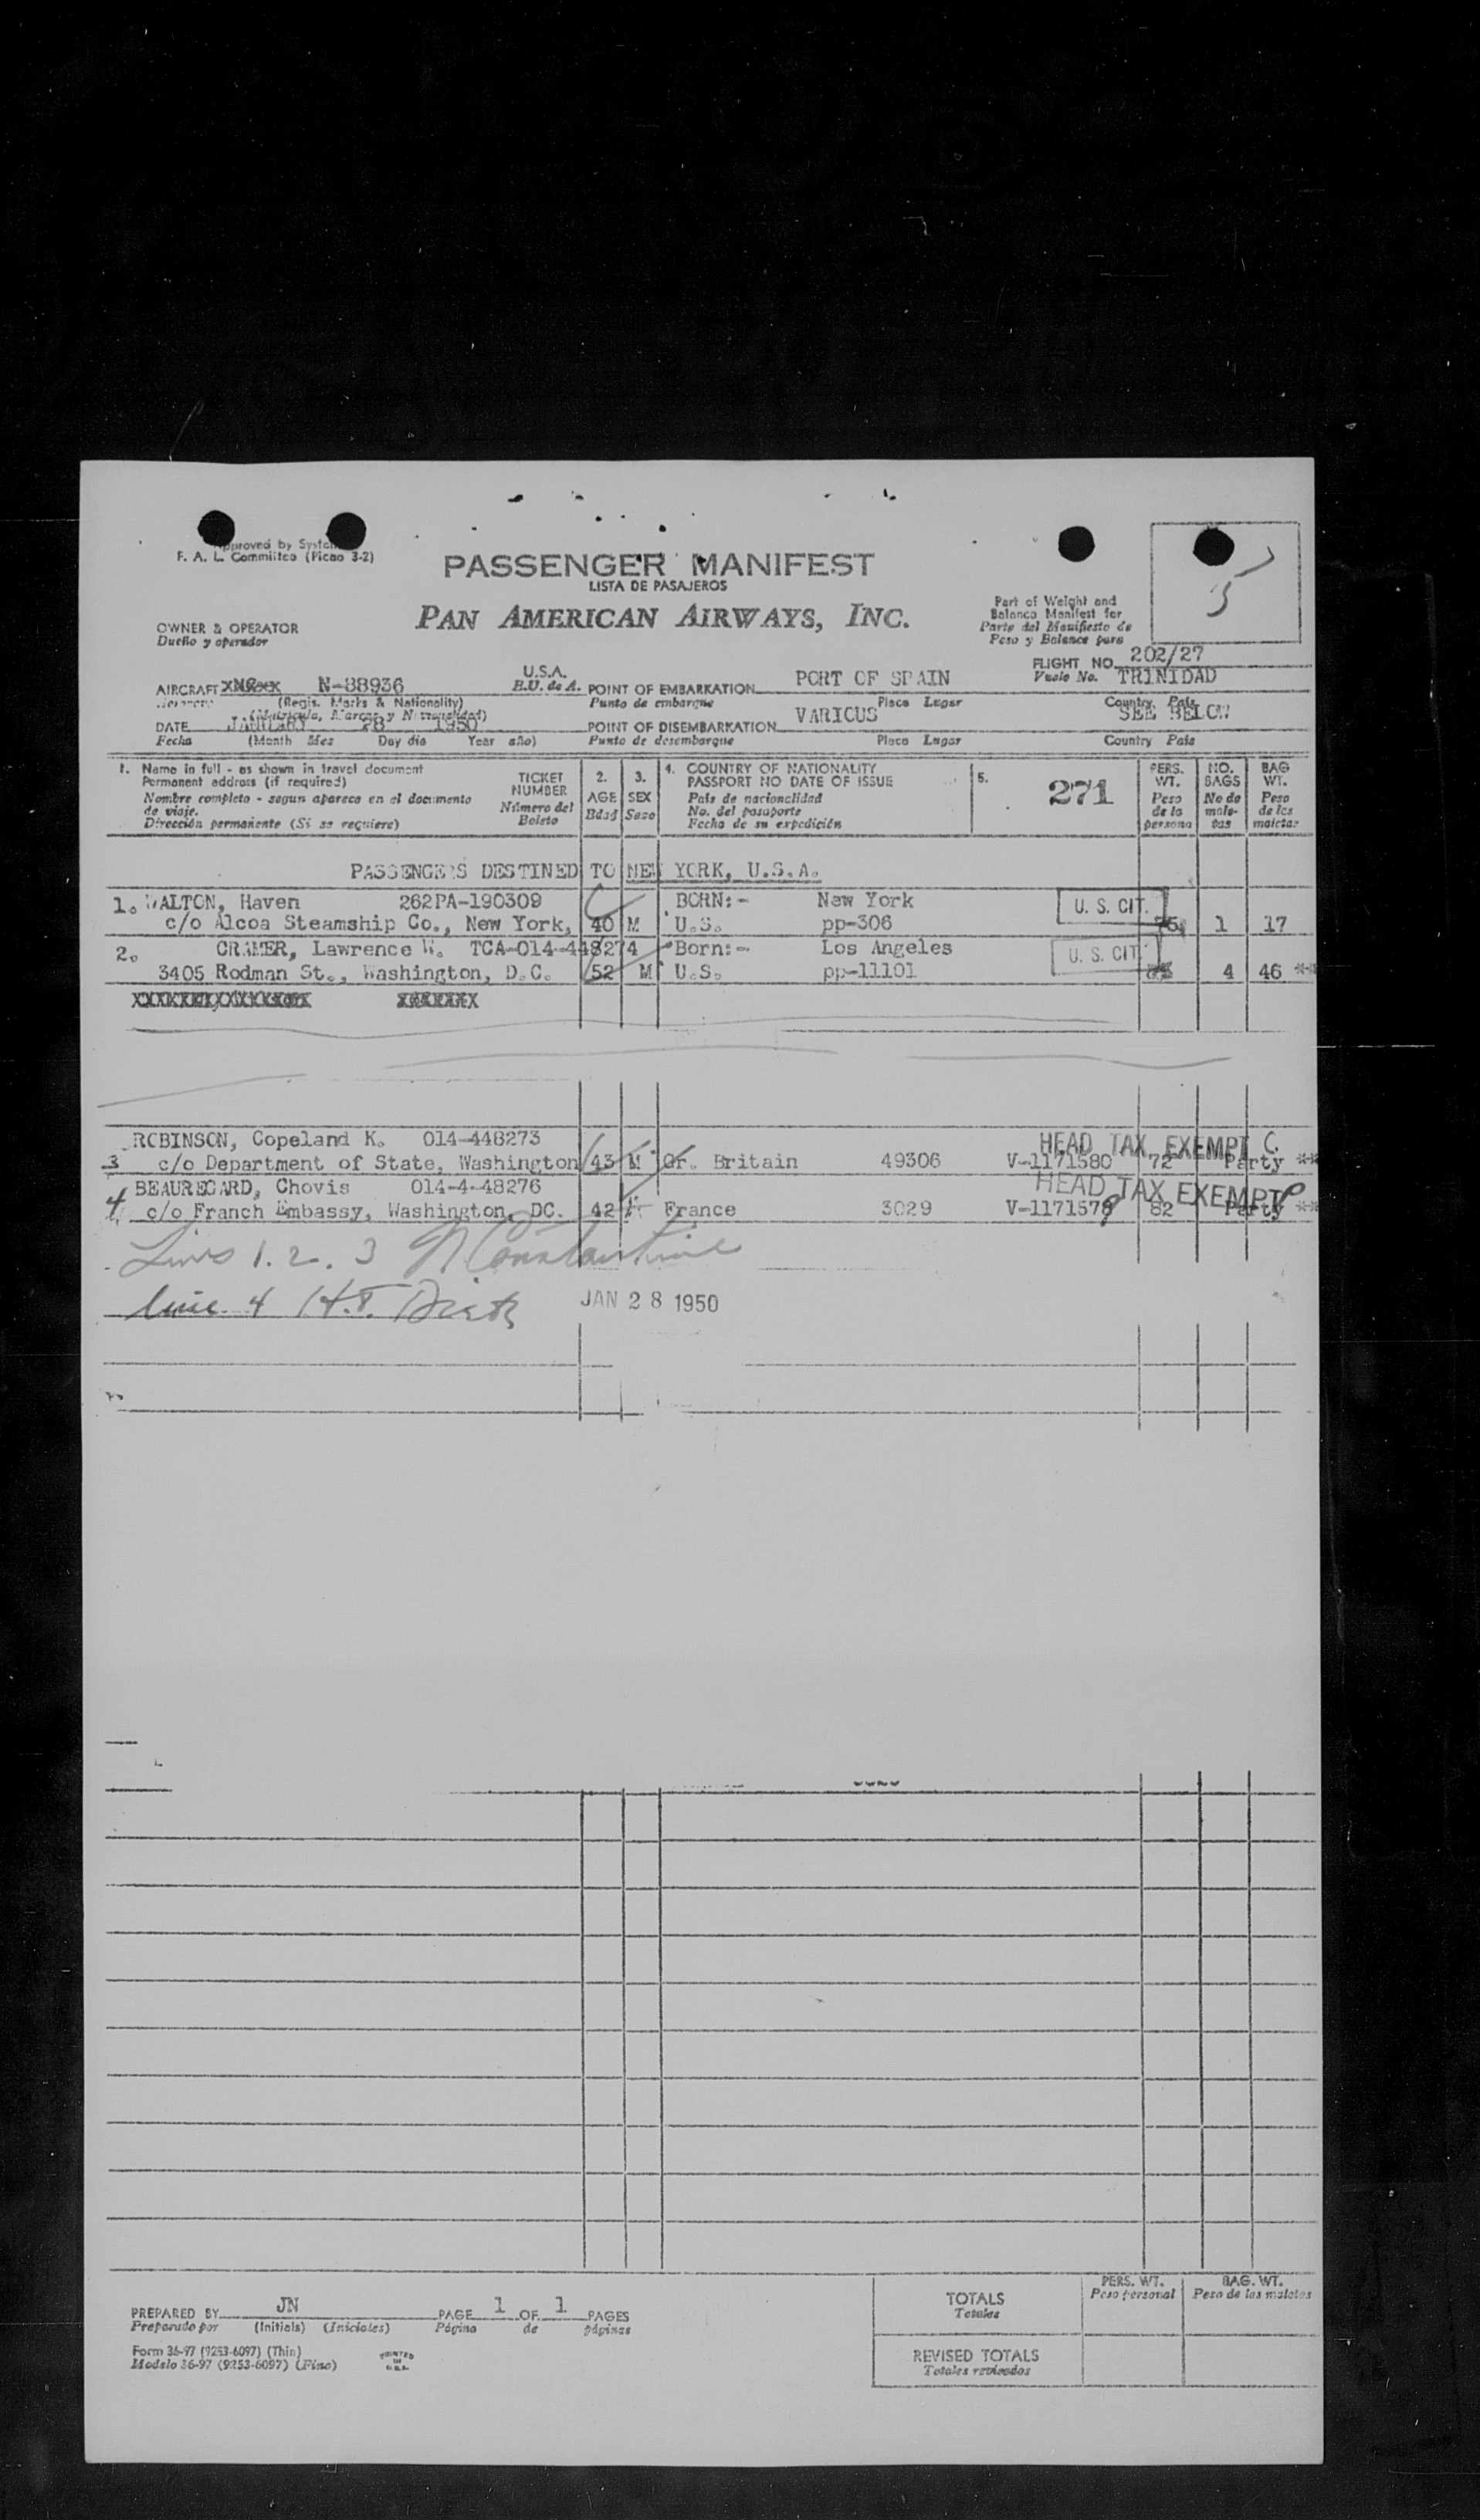 Approved by System
F. A. L. Committee (Picao 3-2)
PASSENGER MANIFEST
LISTA DE PASAJEROS
PAN AMERICAN AIRWAYS, INC.
5
Part of Weight and
Balance Manifest for
Parte del Manifiesto de
Peso y Balance para
OWNER & OPERATOR
Dueño y operador
FLIGHT NO. 202/27
Vuelo No.
AIRCRAFT N-88936 U.S.A. E.U. de A. POINT OF EMBARKATION PORT OF SPAIN TRINIDAD
(Regis. Marks & Nationality) Punto de embarque Place Lugar Country País
(Matricula, Marcas y Nacionalidad)
DATE JANUARY 28 1950 POINT OF DISEMBARKATION VARIOUS SEE BELOW
Fecha (Month Mes Day día Year año) Punto de desembarque Place Lugar Country País
1. Name in full - as shown in travel document
Permanent address (if required)
Nombre completo - segun aparece en el documento
de viaje.
Dirección permanente (Si se requiere)
TICKET
NUMBER
Número del
Boleto
2.
AGE
Edad
3.
SEX
Sexo
4. COUNTRY OF NATIONALITY
PASSPORT NO DATE OF ISSUE
País de nacionalidad
No. del pasaporte
Fecha de su expedición
5.
271
PERS.
WT.
Peso
de la
persona
NO.
BAGS
No de
male-
tas
BAG
WT.
Peso
de las
maletas
PASSENGERS DESTINED TO NEW YORK, U.S.A.
1. WALTON, Haven 262PA-190309 BORN:- New York U. S. CIT.
c/o Alcoa Steamship Co., New York, 40 M U.S. pp-306 1 17
2. CRAMER, Lawrence W. TCA-014-448274 Born:- Los Angeles U. S. CIT
3405 Rodman St., Washington, D.C. 52 M U.S. pp-11101 4 46 **
ROBINSON, Copeland K. 014-448273 HEAD TAX EXEMPT C.
3 c/o Department of State, Washington 43 M Gr. Britain 49306 V-1171580 72 Party **
BEAUREGARD, Chovis 014-4-48276 HEAD TAX EXEMPT
4 c/o Franch Embassy, Washington, DC. 42 France 3029 V-1171579 82 Party **
Lines 1. 2. 3 N Constantine
line 4 H.T. JAN 28 1950
PREPARED BY JN PAGE 1 OF 1 PAGES
Preparado por (Initials) (Iniciales) Página de páginas
Form 36-97 (9253-6097) (Thin)
Modelo 36-97 (9253-6097) (Fino)
PRINTED
IN
U.S.A.
PERS. WT.
Peso personal
BAG. WT.
Peso de las maletas
TOTALS
Totales
REVISED TOTALS
Totales revisados